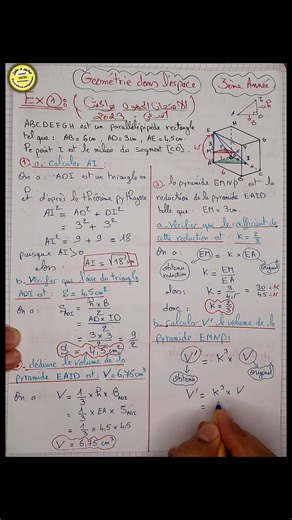 Géométrie dans l'espace
3ème Année
Ex①:
2023
ABCDEFGH est un parallélépipède rectangle
tel que : AB = 6cm, AD = 3cm, AE = 4,5cm
Le point I est le milieu du segment [CD].
① a- Calculer AI
On a : ADI est un triangle en
D et d'après le théorème pythagore
AI² = AD² + DI²
= 3² + 3²
AI² = 9 + 9 = 18
puisque AI > 0
alors : AI = √18 cm
b- Vérifier que l'aire du triangle
ADI est : S = 4,5 cm²
On a :
= AD × ID / 2
= 3 × 3 / 2 = 9/2
S = 4,5 cm²
c- déduire le volume de la
pyramide EAID est V = 6,75 cm³
On a : V = 1/3 × h × B ADI
= 1/3 × EA × S ADI
= 1/3 × 4,5 × 4,5
V = 6,75 cm³
② la pyramide EMNP est la
réduction de la pyramide EAID
telle que EM = 3cm
a- Vérifie que le coefficient de
cette réduction est : K = 2/3
On a : EM = K × EA
obtenu
réduction
original
K = EM / EA
K = 3 / 4,5 = 30 / 45
donc : K = 2/3
b- calculer V' le volume de la
pyramide EMNP :
V' = K³ × V
obtenu
original
V' = K³ × V
=